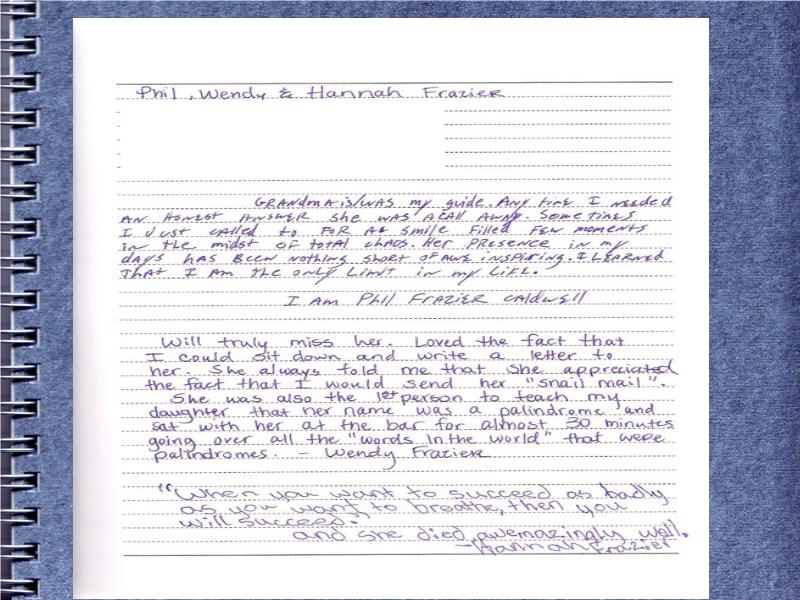 Phil, Wendy & Hannah Frazier
Grandma is/was my guide. Any time I needed
an honest answer she was a call away. Sometimes
I Just called to for a smile filled few moments
in the midst of total chaos. Her presence in my
days has been nothing short of awe inspiring. I learned
that I am the only limit in my life.
I Am Phil Frazier Caldwell
Will truly miss her. Loved the fact that
I could sit down and write a letter to
her. She always told me that she appreciated
the fact that I would send her "snail mail".
She was also the 1st person to teach my
daughter that her name was a palindrome and
sat with her at the bar for almost 30 minutes
going over all the "words in the world" that were
palindromes. - Wendy Frazier
"When you want to succeed as badly
as you want to breathe, then you
will succeed."
and she died awemazingly well.
-Hannah Frazier